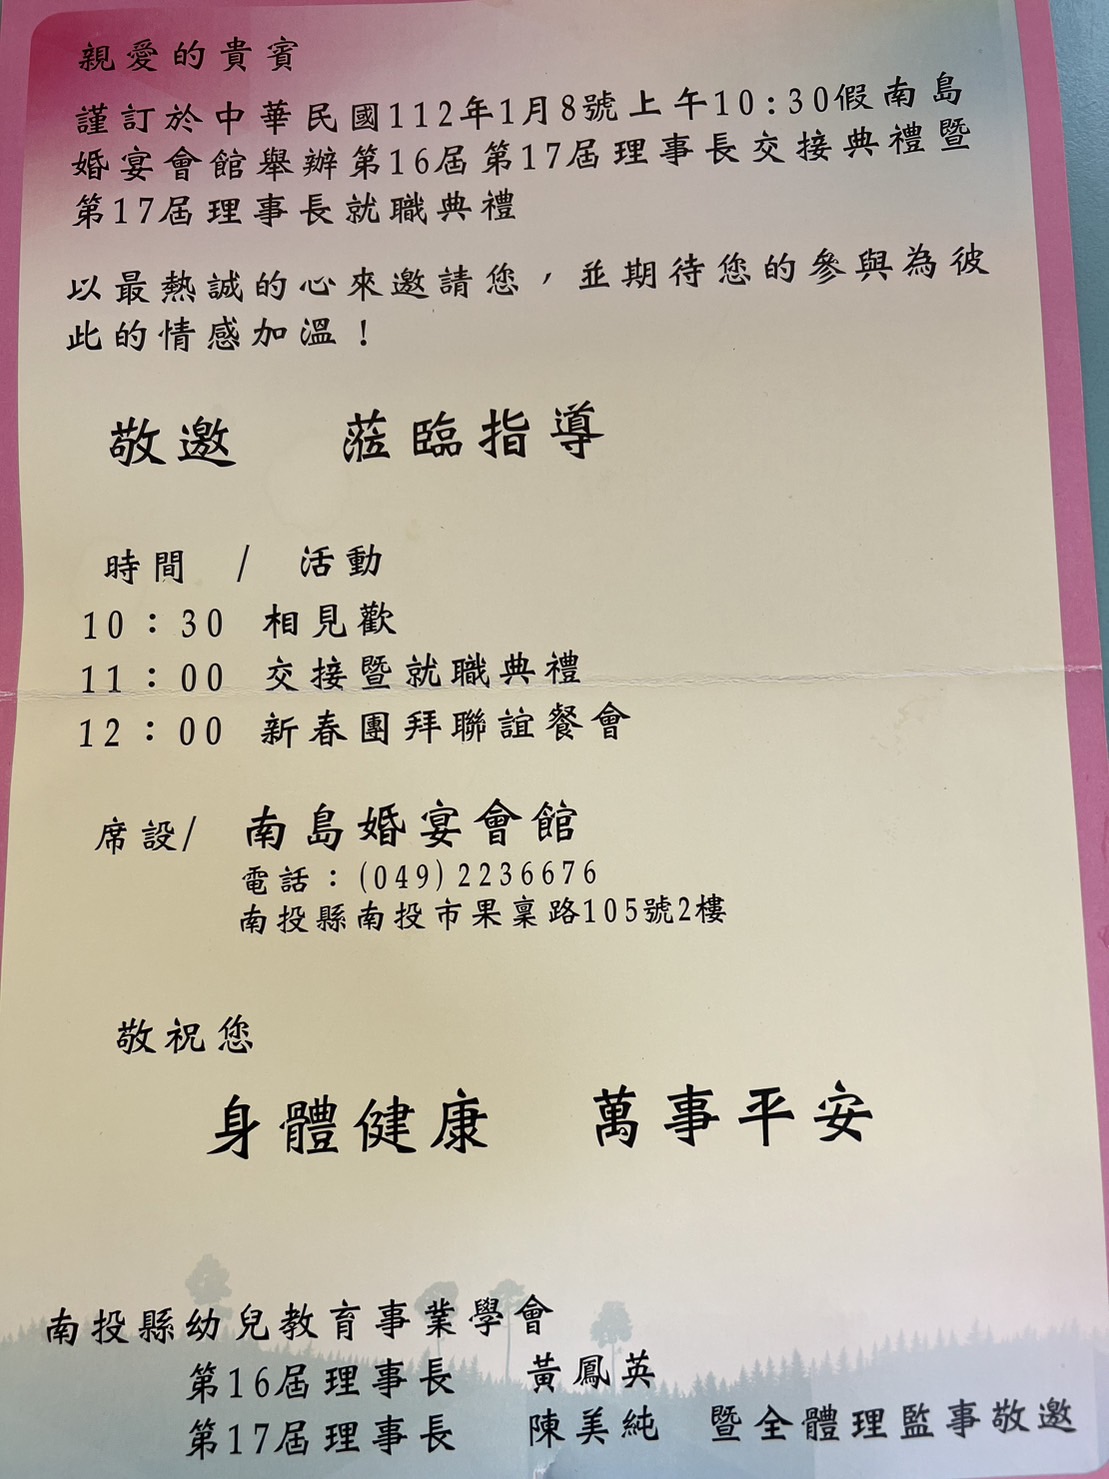 親愛的貴賓
謹訂於中華民國112年1月8號上午10:30假南島
婚宴會館舉辦第16屆第17屆理事長交接典禮暨
第17屆理事長就職典禮
以最熱誠的心來邀請您，並期待您的參與為彼
此的情感加溫！
敬邀 蒞臨指導
時間 / 活動
10：30 相見歡
11：00 交接暨就職典禮
12：00 新春團拜聯誼餐會
席設/ 南島婚宴會館
電話：(049)2236676
南投縣南投市果稟路105號2樓
敬祝您
身體健康 萬事平安
南投縣幼兒教育事業學會
第16屆理事長 黃鳳英
第17屆理事長 陳美純 暨全體理監事敬邀